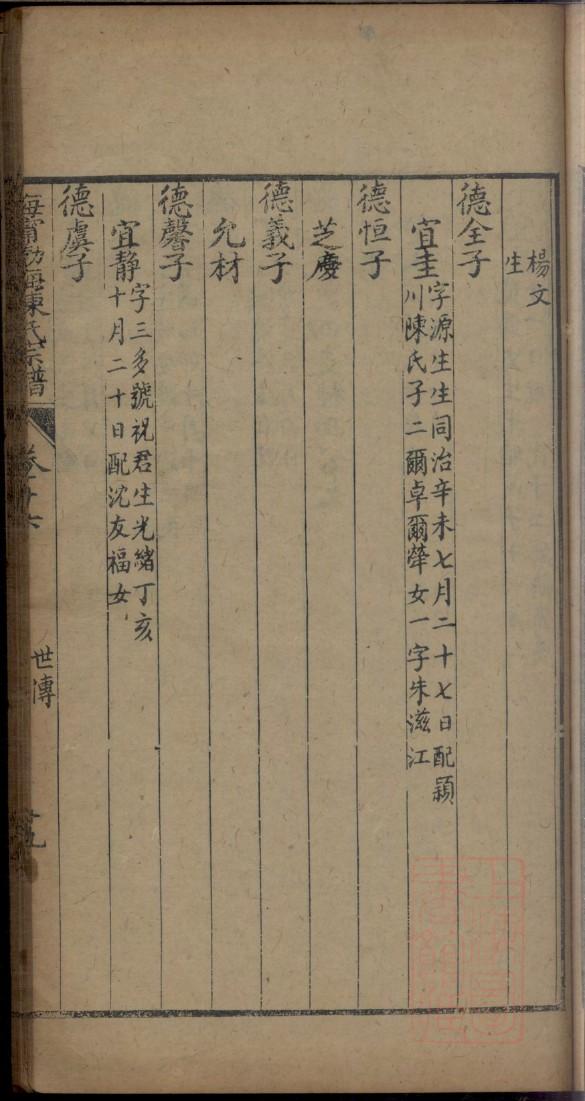 楊文
生
德全子
宜圭
字源生生同治辛未七月二十七日配潁
川陳氏子二爾卓爾犖女一字朱滋江
德恒子
芝慶
德義子
允材
德馨子
宜靜
字三多號祝君生光緒丁亥
十月二十日配沈友福女
德虞子
海甯渤海陳氏宗譜
世傳